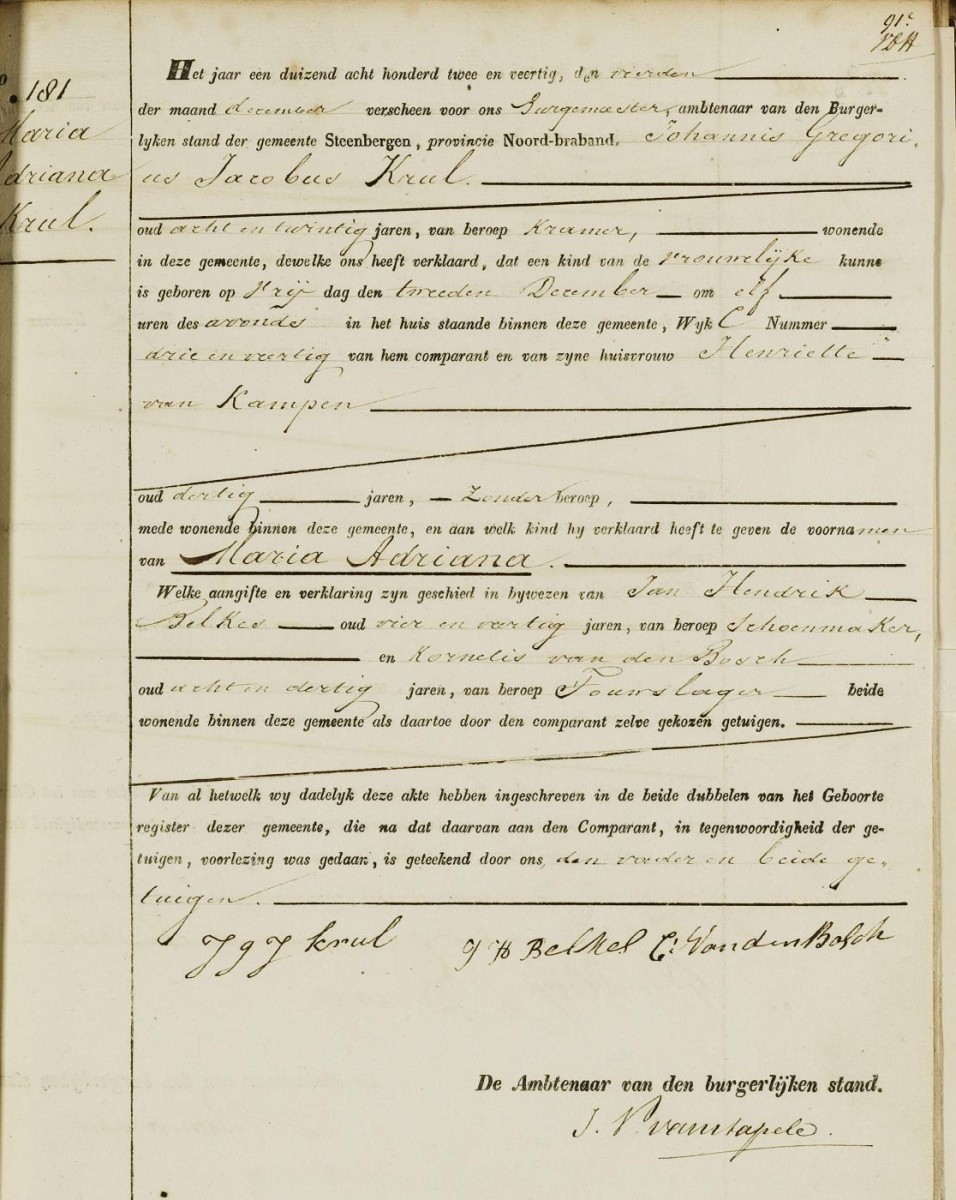 91e
VDH
No. 181
Maria
Adriana
Krul.
Het jaar een duizend acht honderd twee en veertig, den vierden
der maand december verscheen voor ons Burgemeester, ambtenaar van den Burger-
lyken stand der gemeente Steenbergen, provincie Noord-braband, Johannis Gregori-
us Jacobus Krul.
oud acht en twintig jaren, van beroep Kramer, wonende
in deze gemeente, dewelke ons heeft verklaard, dat een kind van de vrouwelijke kunne
is geboren op Vrij dag den tweeden December om elf
uren des avonds in het huis staande binnen deze gemeente, Wyk C Nummer
drie en veertig van hem comparant en van zyne huisvrouw Henriette
van Kampen
oud dertig jaren, zonder beroep,
mede wonende binnen deze gemeente, en aan welk kind hy verklaard heeft te geven de voornamen
van Maria Adriana.
Welke aangifte en verklaring zyn geschied in bywezen van Jan Hendrik
Belkes oud vier en veertig jaren, van beroep Schoenmaker,
en Kornelis van den Bosch
oud acht en dertig jaren, van beroep Touwslager beide
wonende binnen deze gemeente als daartoe door den comparant zelve gekozen getuigen.
Van al hetwelk wy dadelyk deze akte hebben ingeschreven in de beide dubbelen van het Geboorte
register dezer gemeente, die na dat daarvan aan den Comparant, in tegenwoordigheid der ge-
tuigen, voorlezing was gedaan, is geteekend door ons, den vader en beide ge-
tuigen.
J G J Krul J H Belkes C: Van den Bosch
De Ambtenaar van den burgerlijken stand.